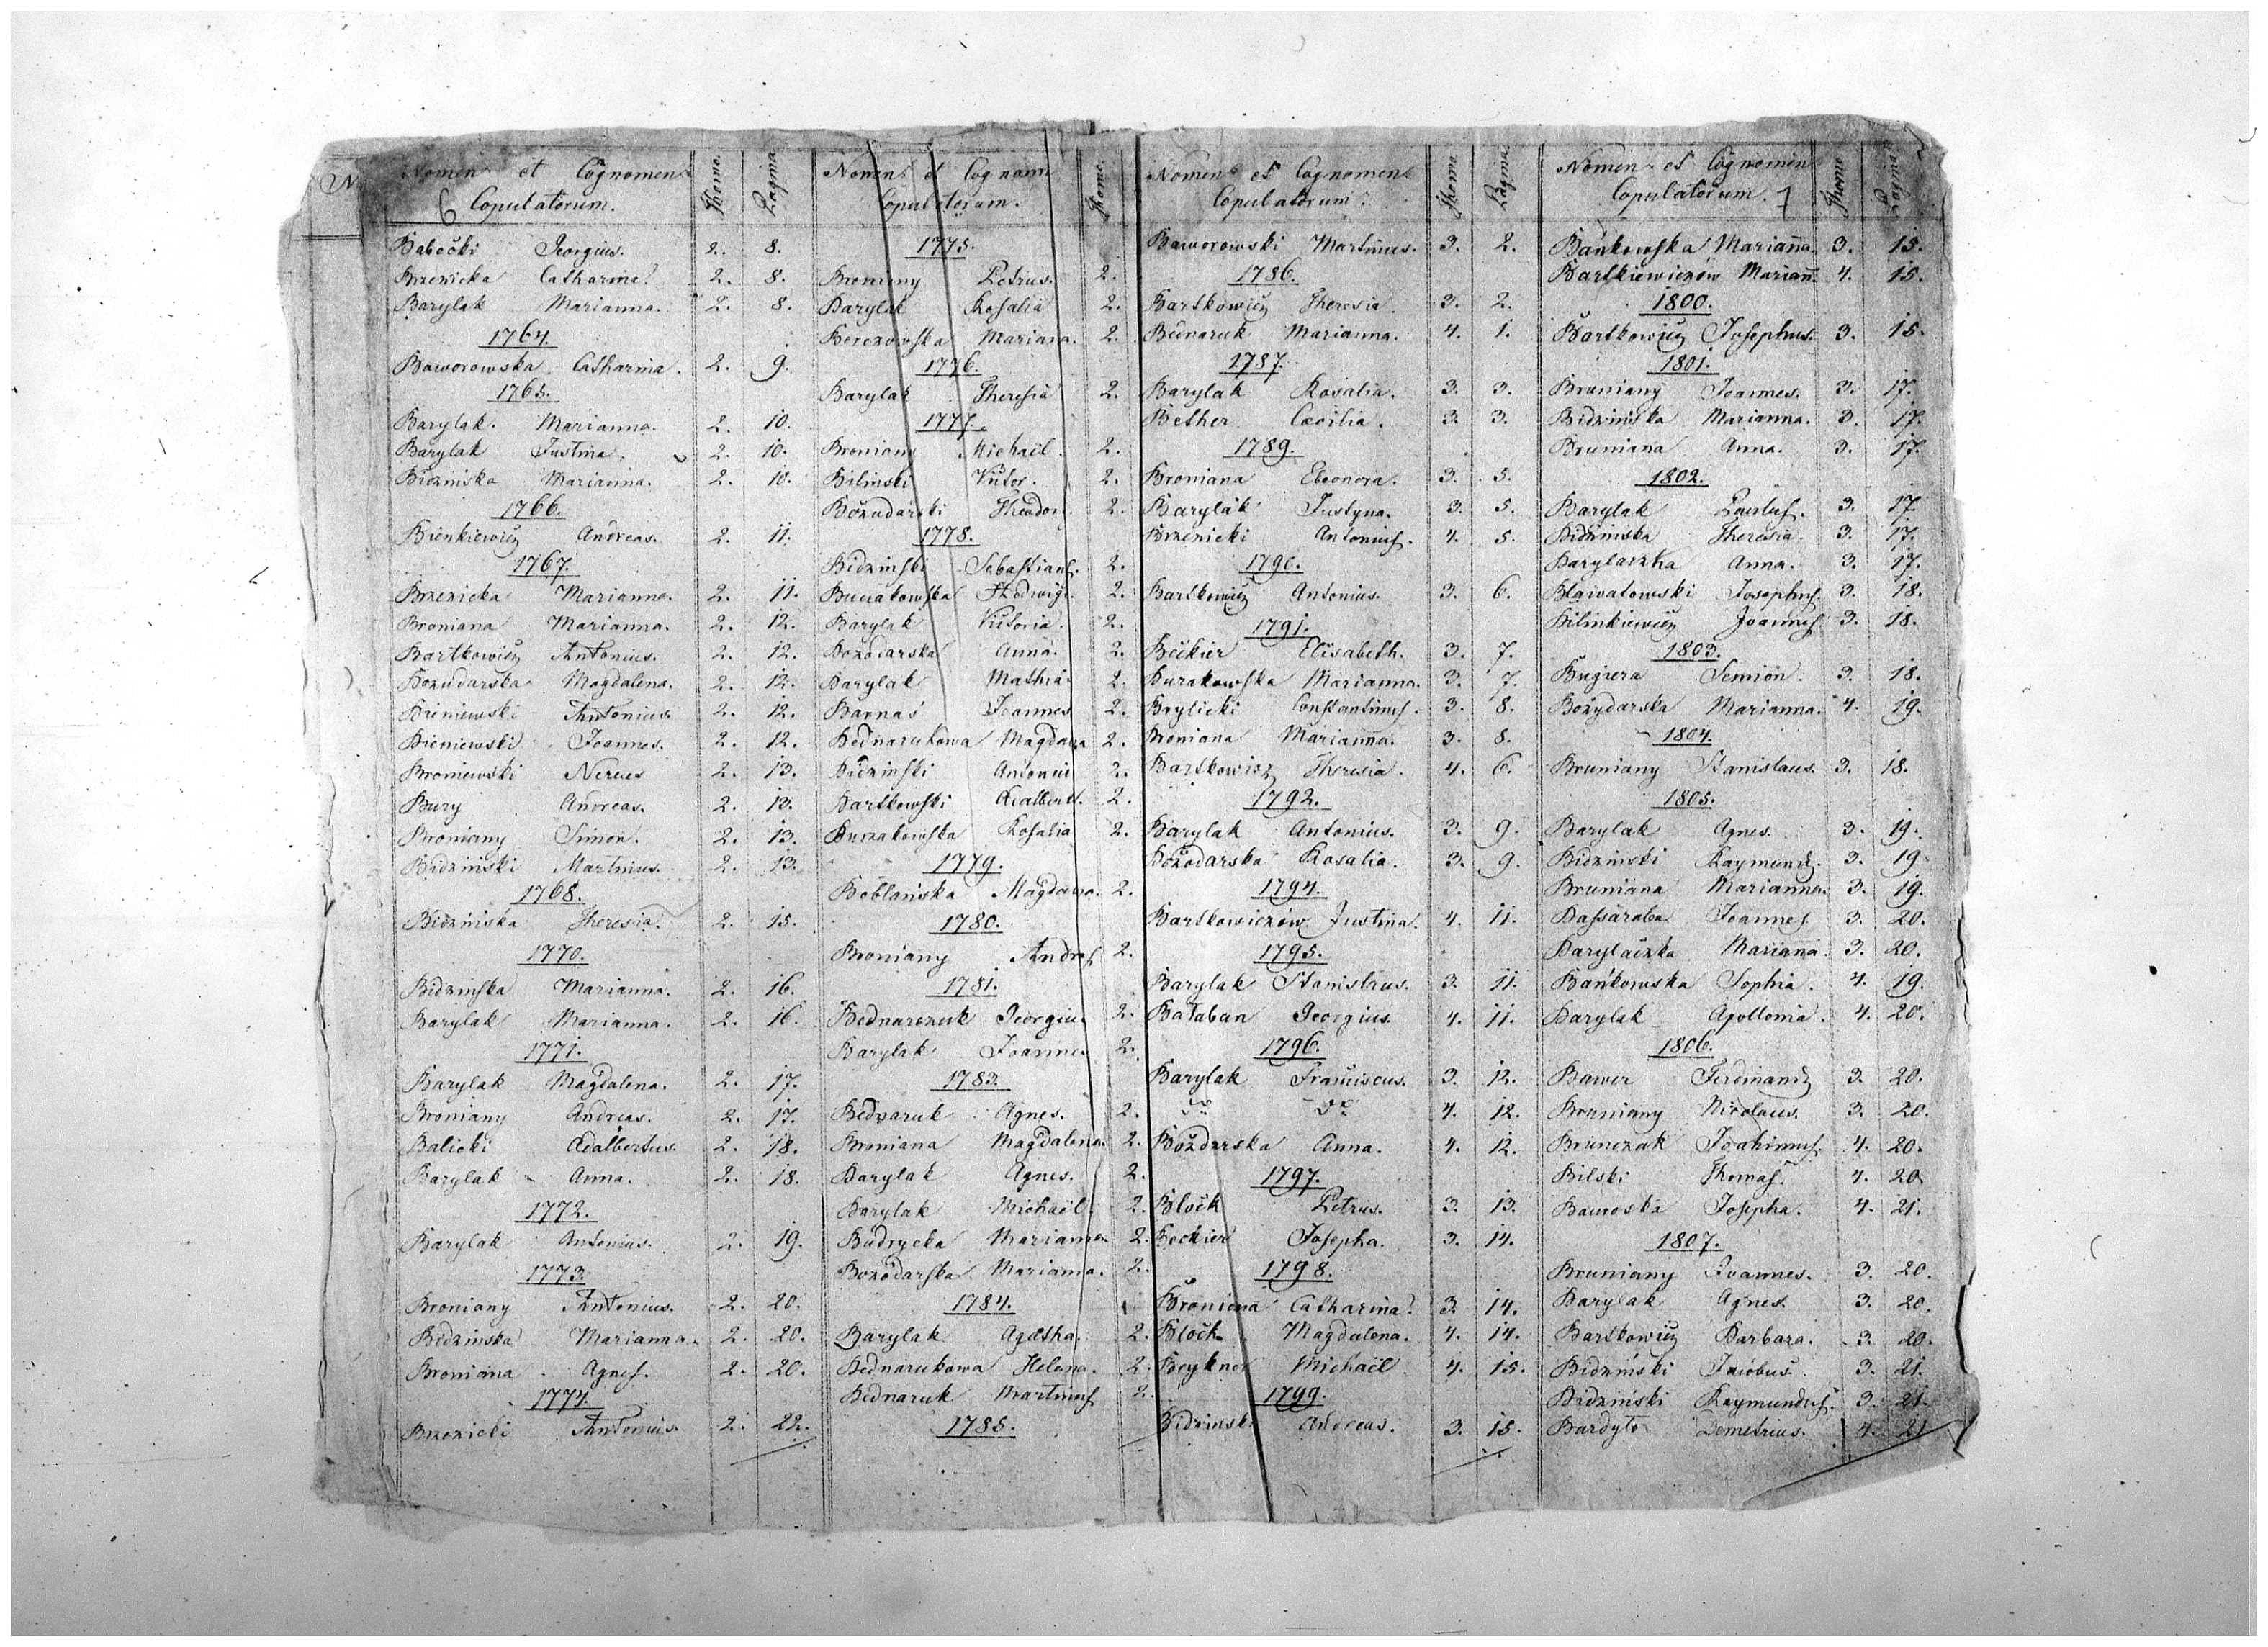 Nomen et Cognomen
Copulatorum.
Thomo.
Pagina
6
Babećki Georgius. 2. 8.
Brzezicka Catharina. 2. 8.
Barylak Marianna. 2. 8.
1764.
Baworowska Catharina. 2. 9.
1765.
Barylak. Marianna. 2. 10.
Barylak Justina. 2. 10.
Bidzinska Marianna. 2. 10.
1766.
Bienkiewicz Andreas. 2. 11.
1767.
Brzezicka Marianna. 2. 11.
Broniana Marianna. 2. 12.
Bartkowicz Antonius. 2. 12.
Bozudarska Magdalena. 2. 12.
Bieniewski Antonius. 2. 12.
Bieniewski Joannes. 2. 12.
Broniewski Nereus 2. 13.
Bury Andreas. 2. 13.
Broniany Simon. 2. 13.
Bidzinski Martinus. 2. 13.
1768.
Bidzinska Theresia. 2. 15.
1770.
Bidzinska Marianna. 2. 16.
Barylak Marianna. 2. 16.
1771.
Barylak Magdalena. 2. 17.
Broniany Andreas. 2. 17.
Balicki Adalbertus. 2. 18.
Barylak Anna. 2. 18.
1772.
Barylak Antonius. 2. 19.
1773.
Broniany Antonius. 2. 20.
Bidzinska Marianna. 2. 20.
Broniana Agnes. 2. 20.
1774.
Brzezicki Antonius. 2. 22.
Nomen et Cognomen
Copulatorum.
Thomo.
1775.
Broniany Petrus. 2.
Barylak Rosalia 2.
Berezowska Mariana. 2.
1776.
Barylak Theresia 2.
1777.
Broniany Michaël. 2.
Bilinski Victor. 2.
Bozudarski Theodor. 2.
1778.
Bidzinski Sebastians. 2.
Hedwigi. 2.
Barylak Victoria. 2.
Bozodarska Anna. 2.
Barylak Mathia 2.
Barnaś Joannes 2.
Bednarukowa Magdalena 2.
Bidzinski Antonius 2.
Bartkowski Adalbert. 2.
Burzakowska Rosalia 2.
1779.
Boblańska Magdalena. 2.
1780.
Broniany Andreas 2.
1781.
Bednarczuk Georgius 2.
Barylak Joannes 2.
1783.
Bednaruk Agnes. 2.
Broniana Magdalena. 2.
Barylak Agnes. 2.
Barylak Michaël 2.
Budrycka Marianna. 2.
Bozodarska Marianna. 2.
1784.
Barylak Agatha. 2.
Bednarukowa Helena. 2.
Bednaruk Martinus 2.
1785.
Nomen et Cognomen
Copulatorum.
Thomo.
Pagina
Baworowski Martinus. 3. 2.
1786.
Bartkowicz Theresia. 3. 2.
Bednaruk Marianna. 4. 1.
1787.
Barylak Rosalia. 3. 3.
Bether Cæcilia. 3. 3.
1789.
Broniana Eleonora. 3. 5.
Barylak Justyna. 3. 5.
Brzezicki Antonius. 4. 5.
1790.
Bartkowicz Antonius. 3. 6.
1791.
Bećkier Elisabeth. 3. 7.
Burakowska Marianna. 3. 7.
Brylicki Constantinus. 3. 8.
Broniana Marianna. 3. 8.
Bartkowicz Theresia. 4. 6.
1792.
Barylak Antonius. 3. 9.
Bożodarska Rosalia. 3. 9.
1794.
Bartkowiczów Justina. 4. 11.
1795.
Barylak Stanislaus. 3. 11.
Bałaban Georgius. 4. 11.
1796.
Barylak Franciscus. 3. 12.
do do 4. 12.
Bozdarska Anna. 4. 12.
1797.
Bloch Petrus. 3. 13.
Beckier Josepha. 3. 14.
1798.
Broniona Catharina. 3. 14.
Bloch Magdalena. 4. 14.
Beykner Michaël 4. 15.
1799.
Bidzinski Andreas. 3. 15.
Nomen et Cognomen
Copulatorum.
Thomo
Pagina
7
Bańkowska Marianna. 3. 15.
Bartkiewiczów Mariann. 4. 15.
1800.
Bartkowicz Josephus. 3. 15.
1801.
Bruniany Joannes. 3. 17.
Bidzińska Marianna. 3. 17.
Bruniana Anna. 3. 17.
1802.
Barylak Paulus. 3. 17
Bidzinska Theresia. 3. 17.
Barylaczka Anna. 3. 17.
Bławatowski Josephus. 3. 18.
Bilinkiewicz Joannes 3. 18.
1803.
Bugiera Semion. 3. 18.
Bożydarska Marianna. 4. 19.
1804.
Bruniany Stanislaus. 3. 18.
1805.
Barylak Agnes. 3. 19.
Bidzinski Raymund. 3. 19.
Bruniana Marianna. 3. 19.
Bassaraba Joannes 3. 20.
Barylaczka Mariana. 3. 20.
Bańkowska Sophia. 4. 19.
Barylak Apollonia. 4. 20.
1806.
Bawer Ferdinand 3. 20.
Bruniany Nicolaus. 3. 20.
Brunczak Joahimus. 4. 20.
Bilski Thomas. 4. 20.
Josepha. 4. 21.
1807.
Bruniany Joannes. 3. 20.
Barylak Agnes. 3. 20.
Bartkowicz Barbara. 3. 20.
Bidziński Jacobus. 3. 21.
Bidziński Raymundus. 3. 21.
Bardyło Demetrius. 4. 21